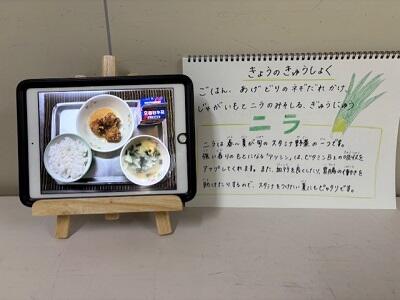 きょうのきゅうしょく
ごはん、あげどりのネギだれがけ、
じゃがいもとニラのみそしる、ぎゅうにゅう
ニラ
ニラは春〜夏が旬のスタミナ野菜の一つです。
強い香りのもとになる「アリシン」は、ビタミンB1の吸収を
アップしてくれます。また、血行を良くしたり、胃腸の働きを
助けたりするので、スタミナをつけたい夏にもピッタリです。